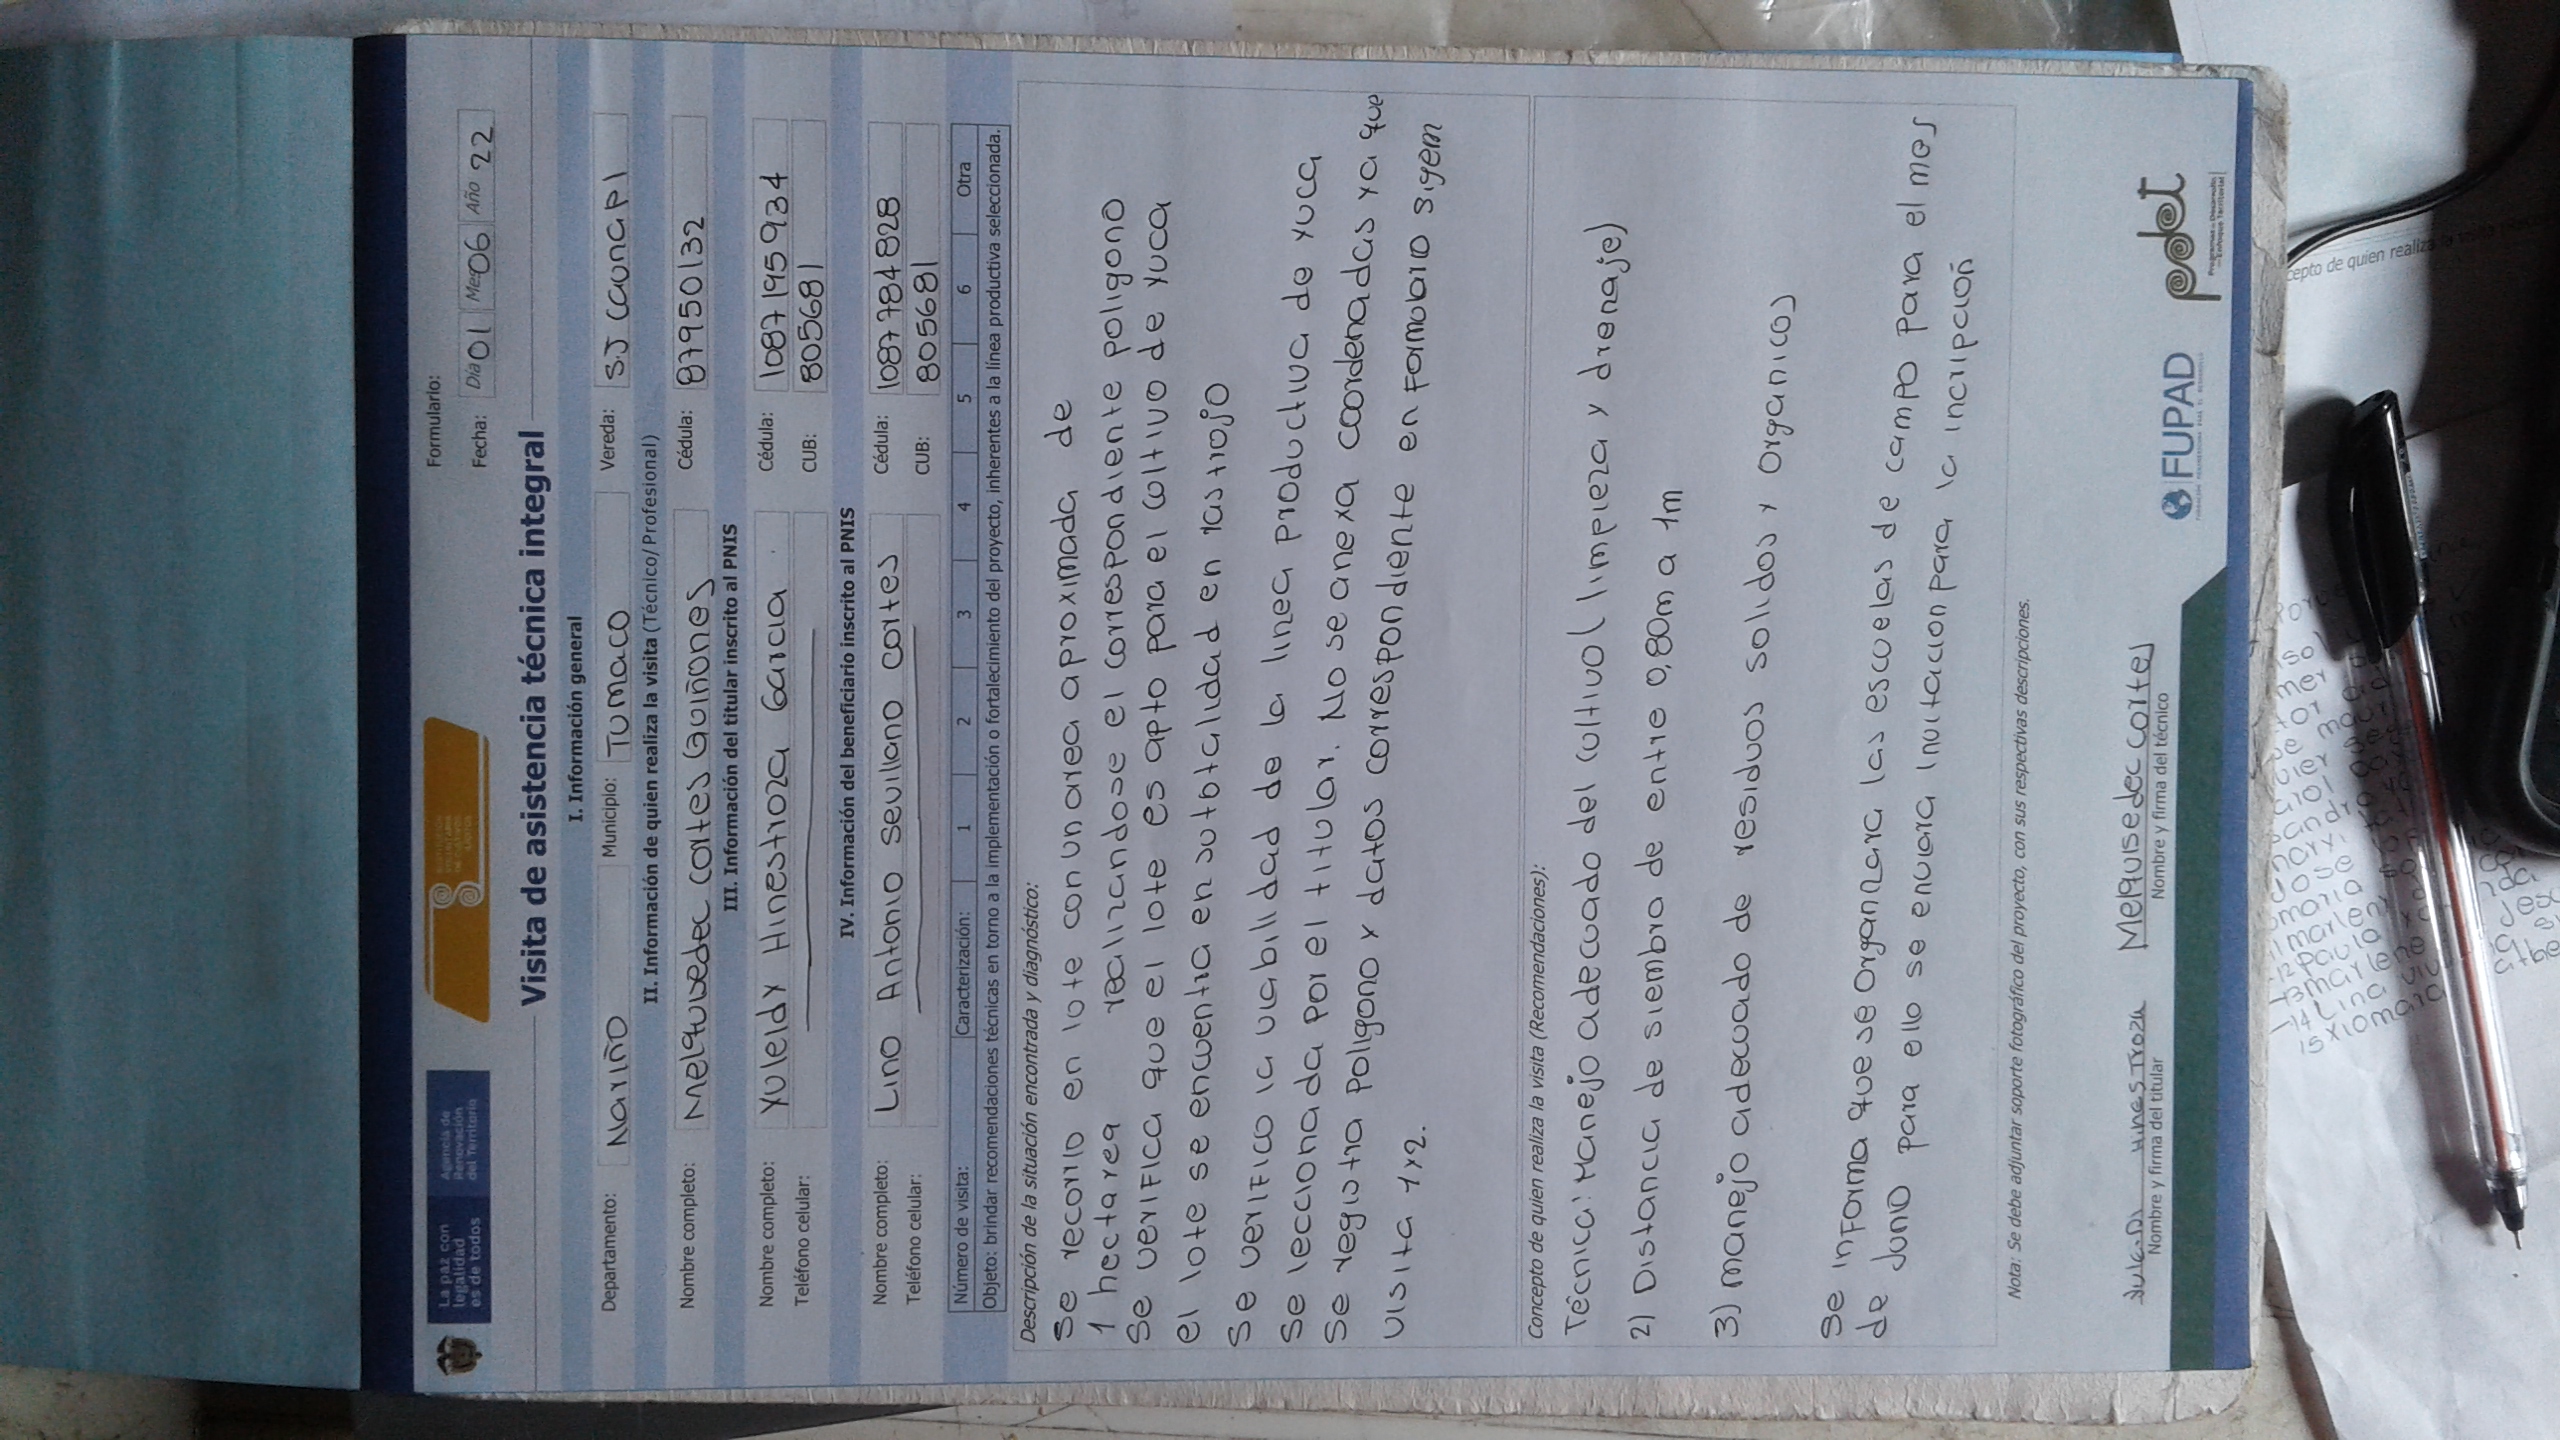 La paz con
legalidad
es de todos
Agencia de
Renovación
del Territorio
Formulario:
Fecha: Día 01 Mes 06 Año 22
Visita de asistencia técnica integral
I. Información general
Departamento: Nariño Municipio: Tumaco Vereda: S.J Caunapi
II. Información de quien realiza la visita (Técnico/Profesional)
Nombre completo: Melquisedec cortes Quiñones Cédula: 87950132
III. Información del titular inscrito al PNIS
Nombre completo: Yuleidy Hinestroza Garcia Cédula: 1087195934
Teléfono celular: CUB: 805681
IV. Información del beneficiario inscrito al PNIS
Nombre completo: Lino Antonio Sevillano cortes Cédula: 1087784828
Teléfono celular: CUB: 805681
Número de visita: Caracterización: 1 2 3 4 5 6 Otra
Objeto: brindar recomendaciones técnicas en torno a la implementación o fortalecimiento del proyecto, inherentes a la línea productiva seleccionada.
Descripción de la situación encontrada y diagnóstico:
Se recorrio en lote con un area aproximada de
1 hectarea realizandose el correspondiente poligono
Se verifica que el lote es apto para el cultivo de yuca
el lote se encuentra en su totalidad en rastrojo
Se verifico la viabilidad de la linea productiva de yuca
Seleccionada por el titular. No se anexa coordenadas ya que
Se registra poligono y datos correspondiente en formulario sigem
visita 1 y 2.
Concepto de quien realiza la visita (Recomendaciones):
Técnica: Manejo adecuado del cultivo( limpieza y drenaje)
2) Distancia de siembra de entre 0,80m a 1m
3) manejo adecuado de residuos solidos y organicos
Se informa que se organizara las escuelas de campo para el mes
de Junio para ello se enviara invitacion para la incripción
Nota: Se debe adjuntar soporte fotográfico del proyecto, con sus respectivas descripciones.
Hinestroza
Nombre y firma del titular
Melquisedec cortes
Nombre y firma del técnico
FUPAD
pdet
Programas de Desarrollo
con Enfoque Territorial
cepto de quien realiza la visita
12 Paula
13 marlene
14 Lina
15 Xiomara